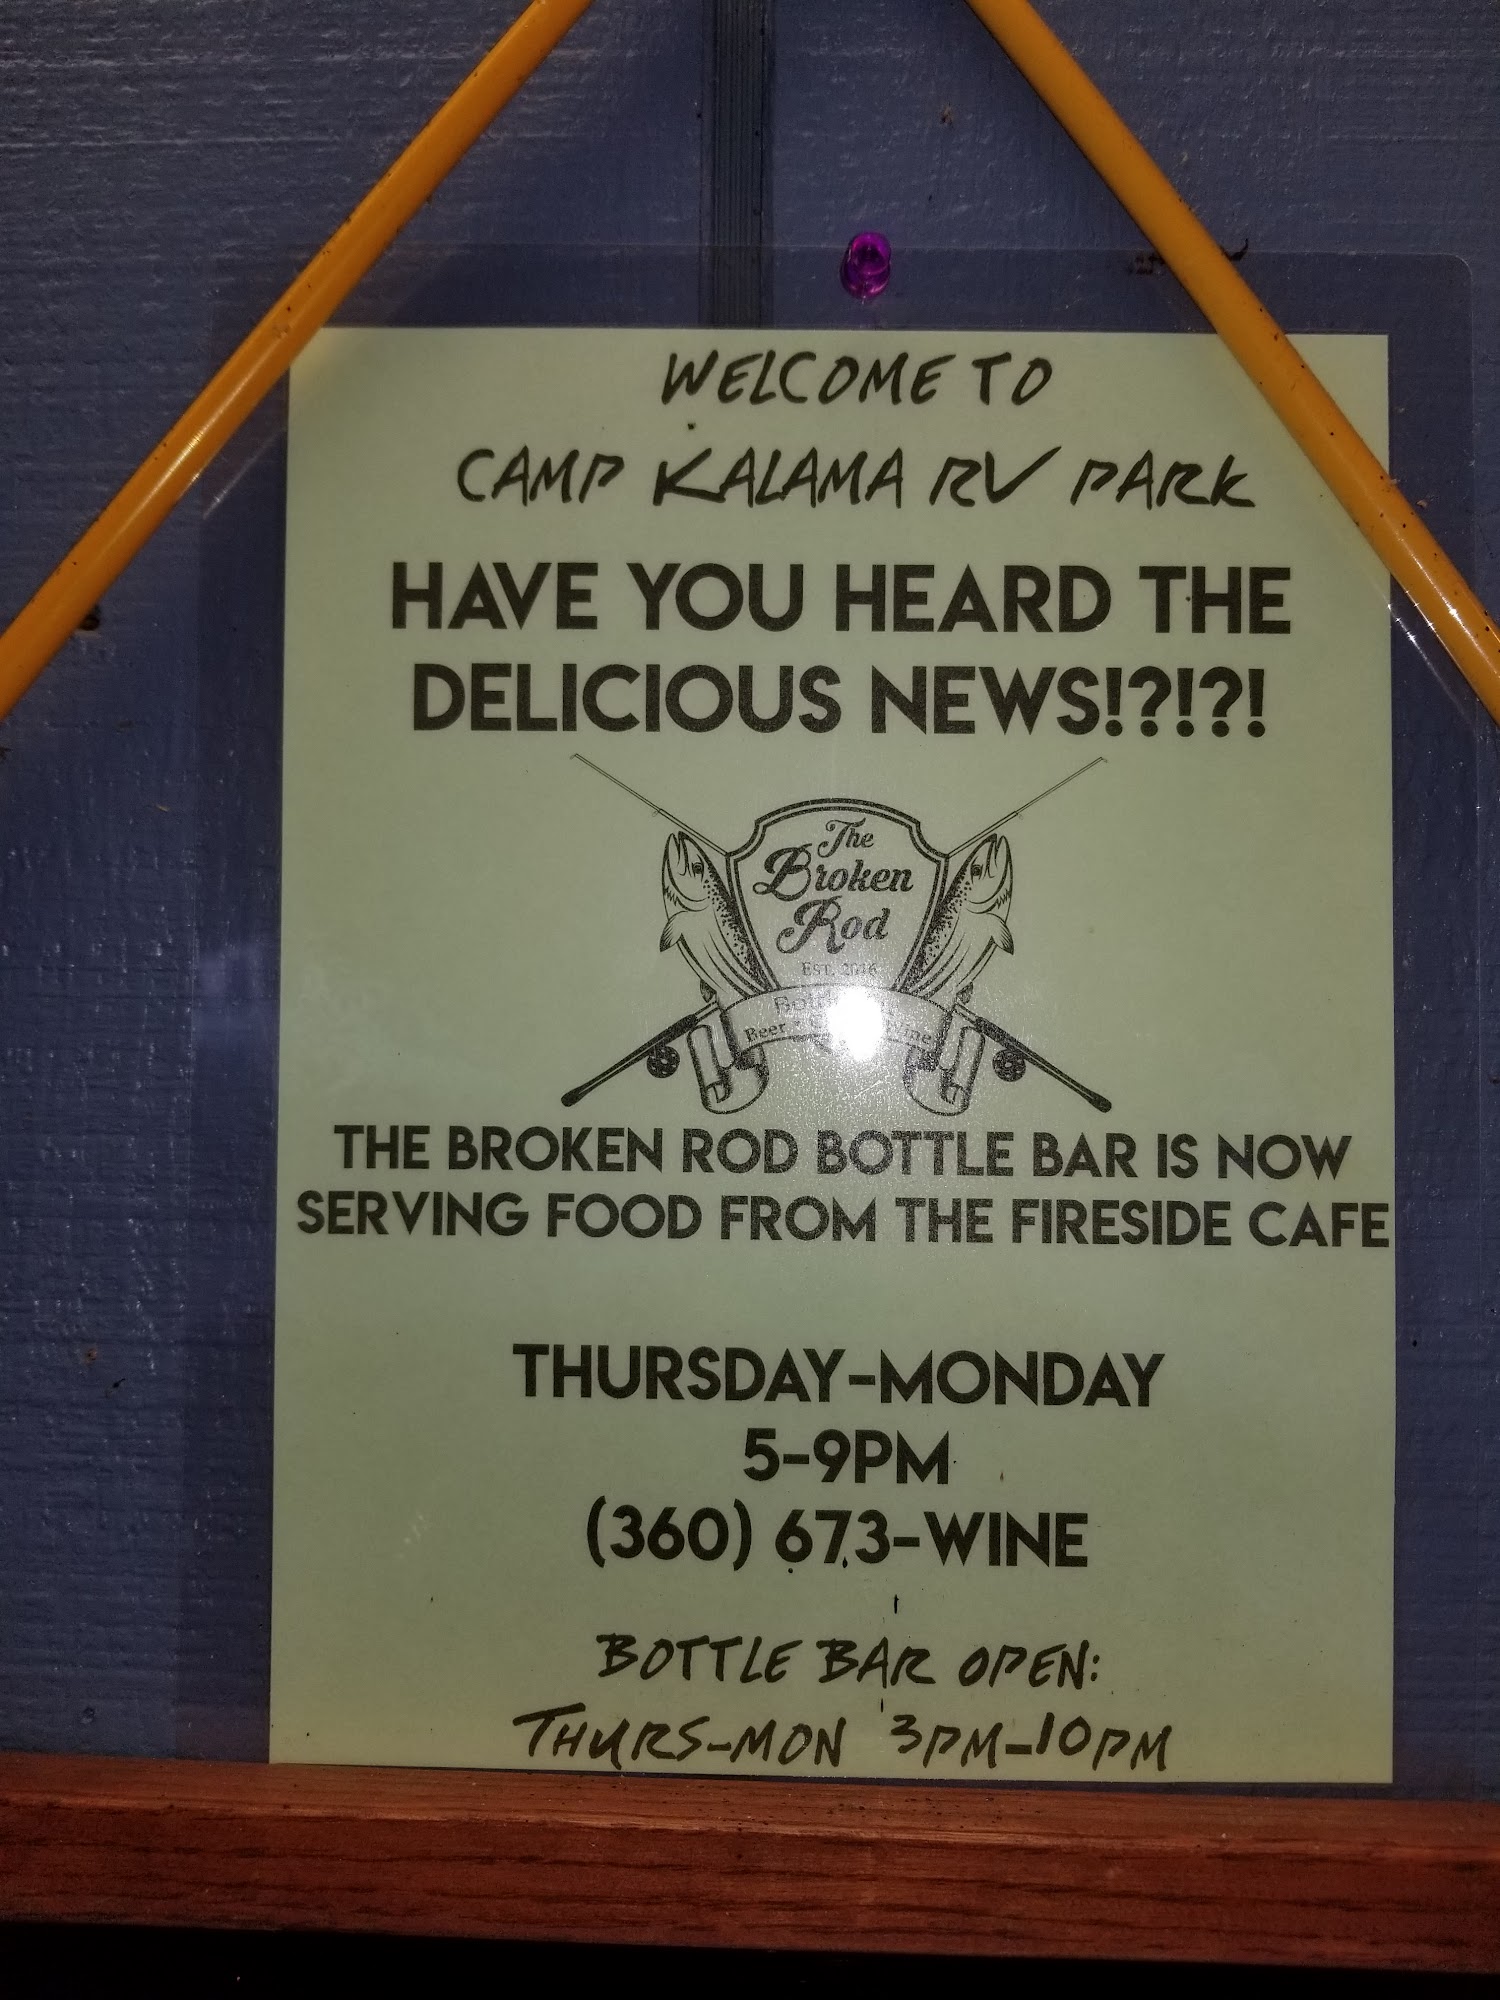 WELCOME TO
CAMP KALAMA RV PARK
HAVE YOU HEARD THE
DELICIOUS NEWS!?!?!
The
Broken
Rod
EST. 2016
Beer • Wine
THE BROKEN ROD BOTTLE BAR IS NOW
SERVING FOOD FROM THE FIRESIDE CAFE
THURSDAY-MONDAY
5-9PM
(360) 673-WINE
BOTTLE BAR OPEN:
THURS-MON 3PM-10PM